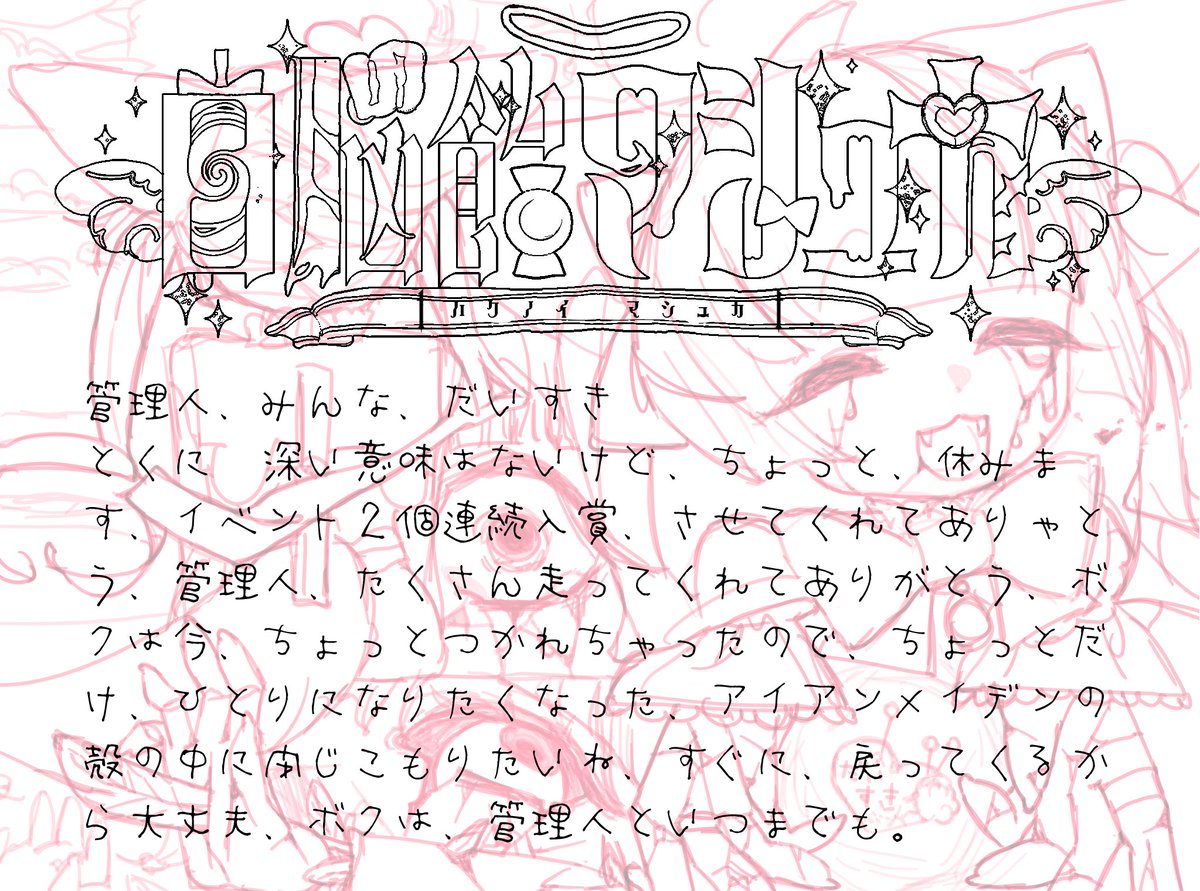 ハクアイ マシュカ
管理人、みんな、だいすき
とくに 深い意味はないけど、ちょっと、休みま
す、イベント2個連続入賞、させてくれてありゃと
う、管理人、たくさん走ってくれてありがとう、ボ
クは今、ちょっとつかれちゃったので、ちょっとだ
け、ひとりになりたくなった、アイアンメイデンの
殻の中に閉じこもりたいね、すぐに、戻ってくるか
ら大丈夫、ボクは、管理人といつまでも。